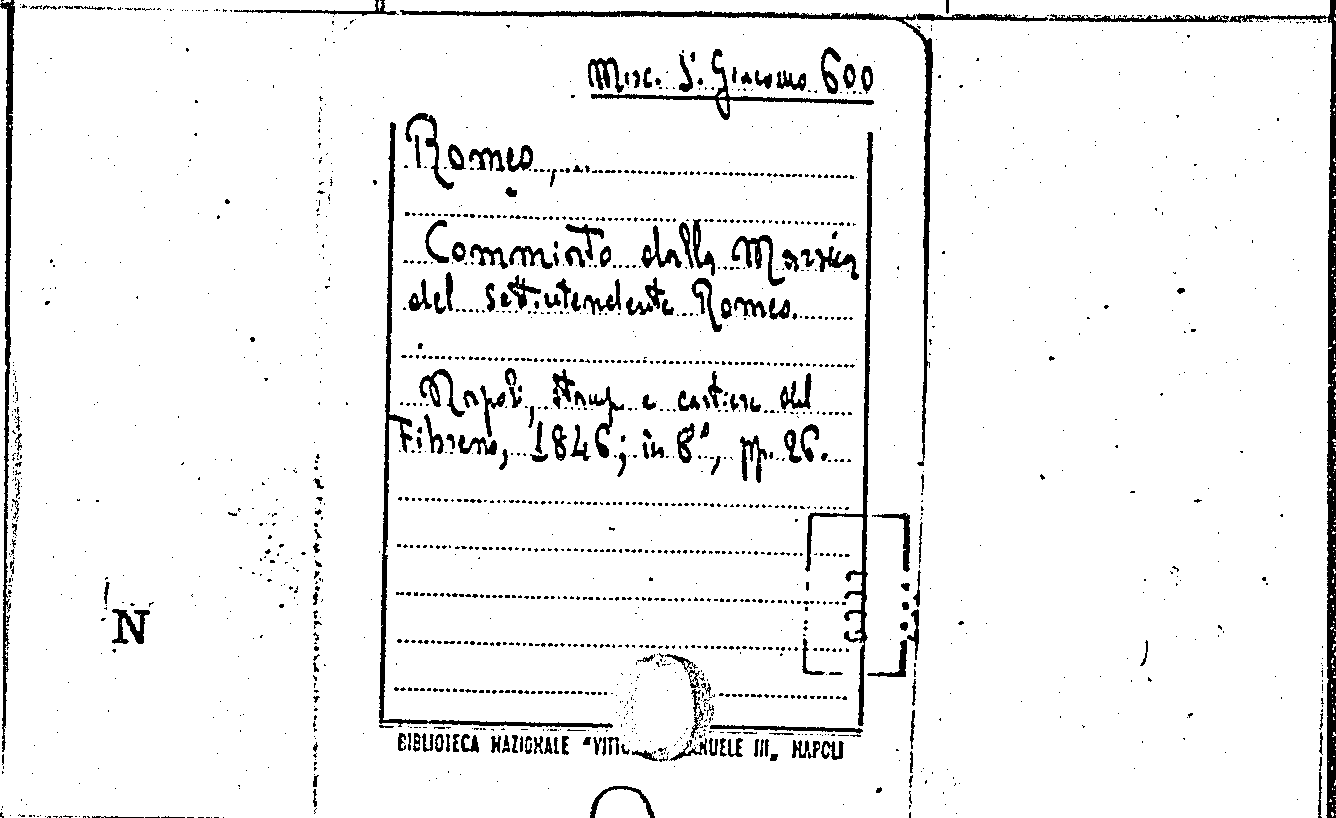 Misc. S. Giacomo 600
Romeo, ...
Commiato dalla Marsica
del sottintendente Romeo.
Napoli, stamp. e cartiere del
Fibreno, 1846; in 8°, pp. 26.
N
BIBLIOTECA NAZIONALE "VITTO NUELE III„ NAPOLI